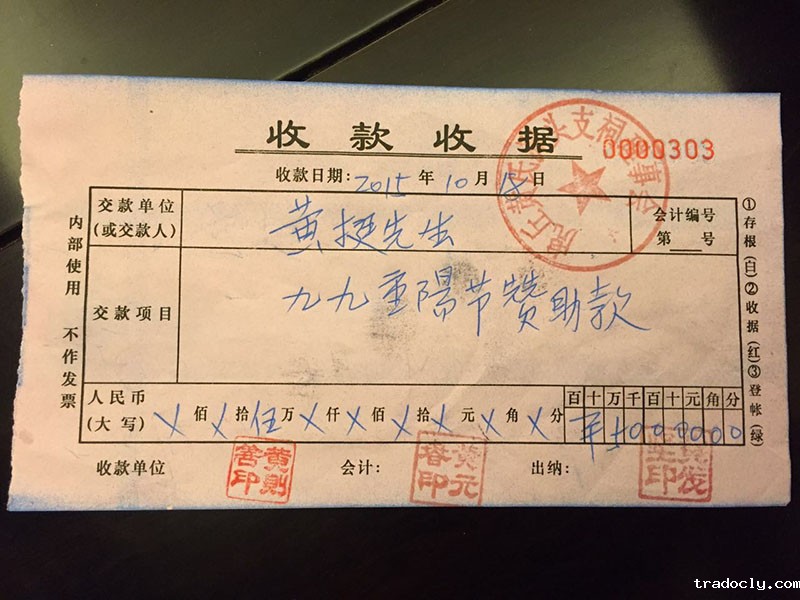 收款收据
0000303
收款日期: 2015 年 10 月 18 日
交款单位
(或交款人)
黄挺先生
会计编号
第 号
交款项目
九九重陽节贊助款
人民币
(大写)
X 佰 X 拾 伍 万 X 仟 X 佰 X 拾 X 元 X 角 X 分
百 十 万 千 百 十 元 角 分
¥ 5 0 0 0 0 0 0
收款单位
会计:
出纳:
黄則
善印
黄元
春印
内部使用 不作发票
①存根(白)②收据(红)③登帐(绿)
tradocly.com